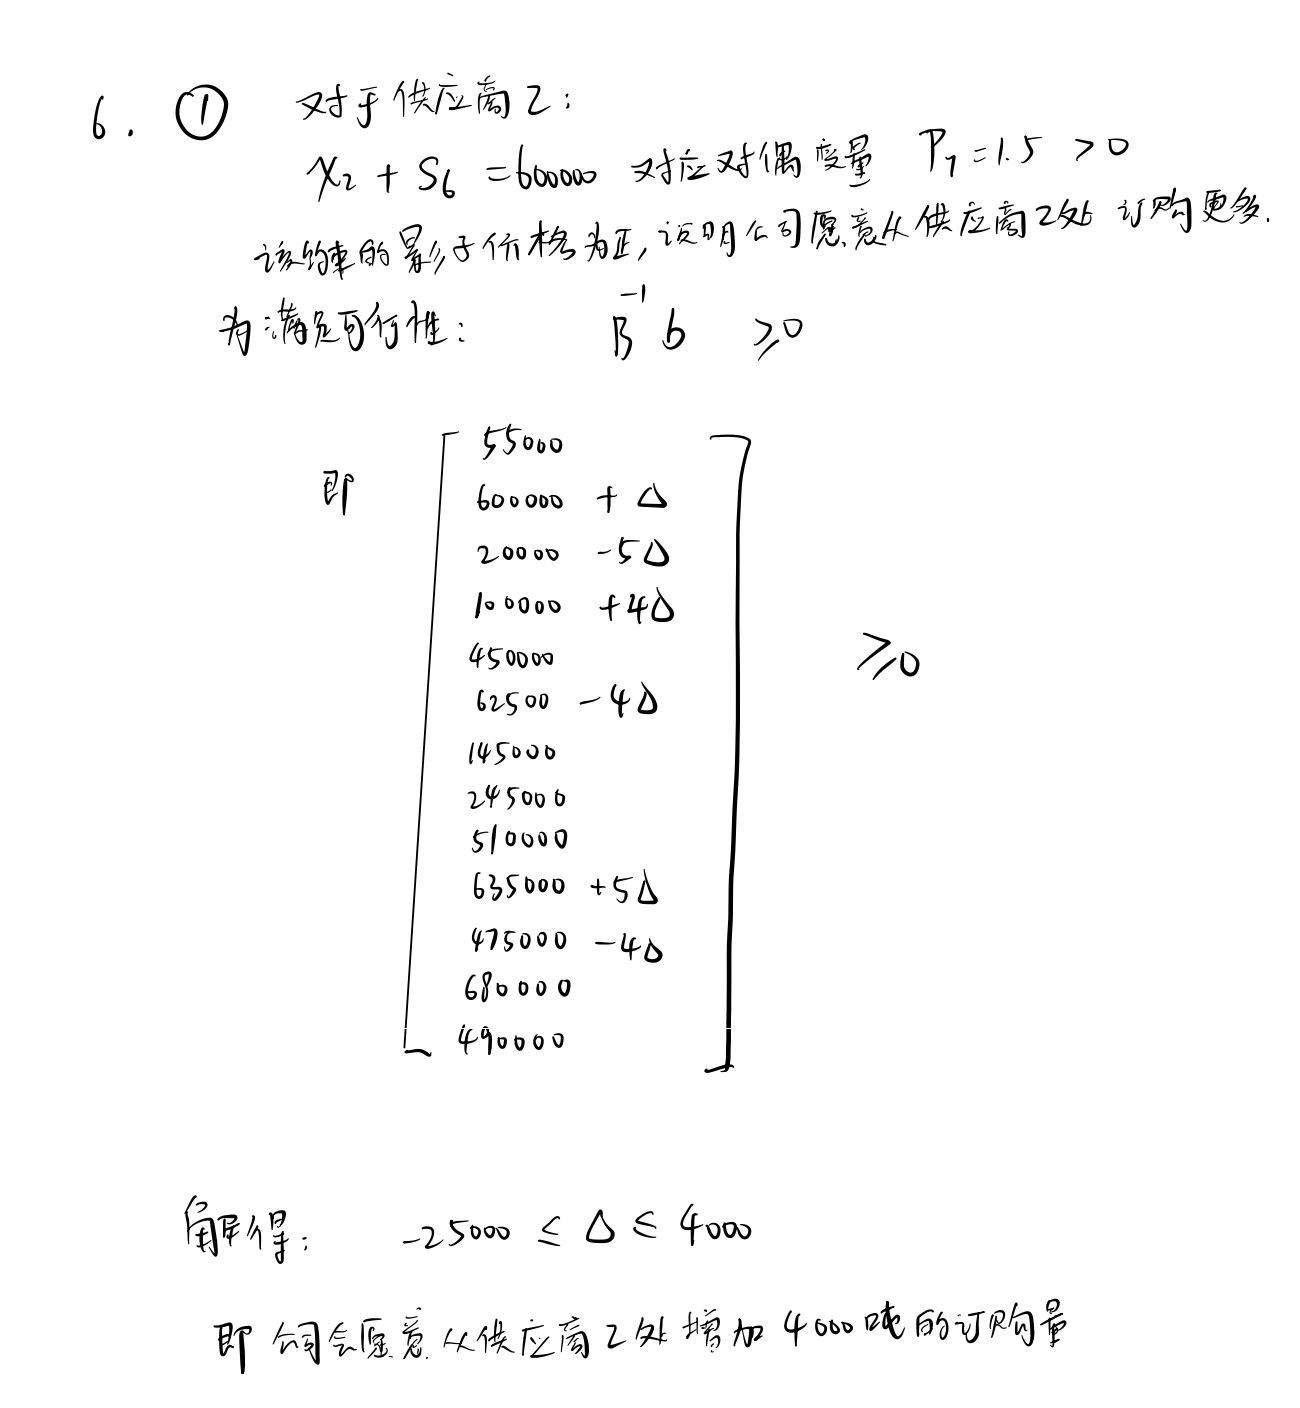 6. ① 对于供应商2:
x₂ + S₆ = 600000 对应对偶变量 P₇ = 1.5 > 0
该约束的影子价格为正,说明公司愿意从供应商2处订购更多.
为满足可行性: B⁻¹b ≥0
55000
即 600000 + Δ
20000 -5Δ
100000 +4Δ
450000 ≥0
62500 -4Δ
145000
245000
510000
635000 +5Δ
475000 -4Δ
680000
490000
解得: -25000 ≤ Δ ≤ 4000
即公司会愿意从供应商2处增加4000吨的订购量